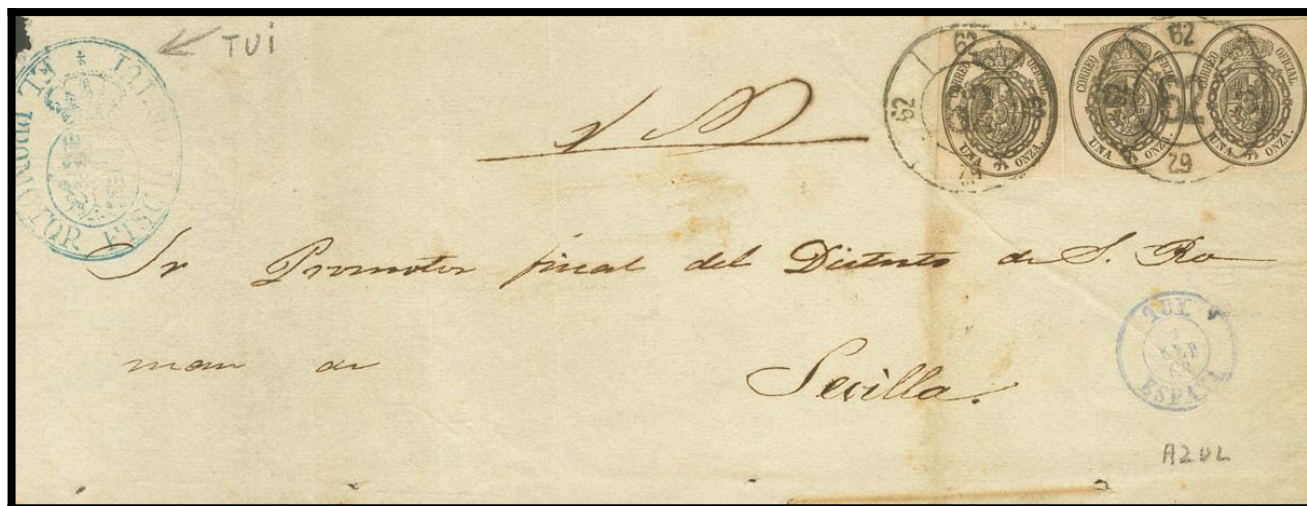 TUI
EL PROMOTOR FISCAL
CORREO OFICIAL
UNA ONZA.
CORREO OFICIAL
UNA ONZA.
CORREO OFICIAL
UNA ONZA.
62
62
62
62
62
S. N
Sr Promotor fiscal del Distrito de S. Ro
man de
Sevilla.
TUY
7
SEP
68
ESPAÑA
AZUL